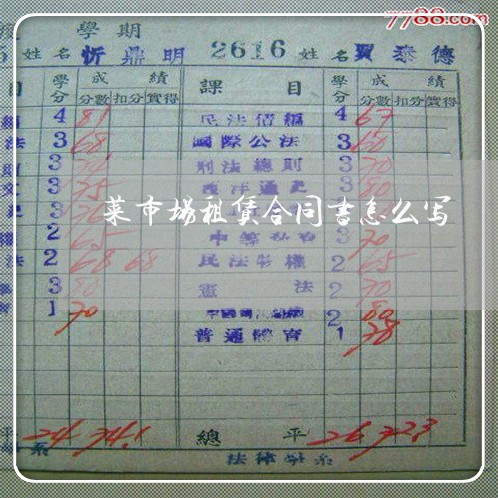 7788.com
學期
姓名 忻鼎明 2616 姓名 賈泰德
目 學分 成績 課目 學分 成績
分數 扣分 實得 分數 扣分 實得
4 81 民法債編 4 67
法 3 68 國際公法 3 60
3 刑法總則 3 70
3 75 西洋通史 3 80
菜市场租赁合同书怎么写
權 2 65 3 70
法 2 68 68 民法物權 2 65
3 80 憲法 2 70
1 70 2 80
普通體育 1 78
平 24 74.1 總平 26 72.3
系 法律學系